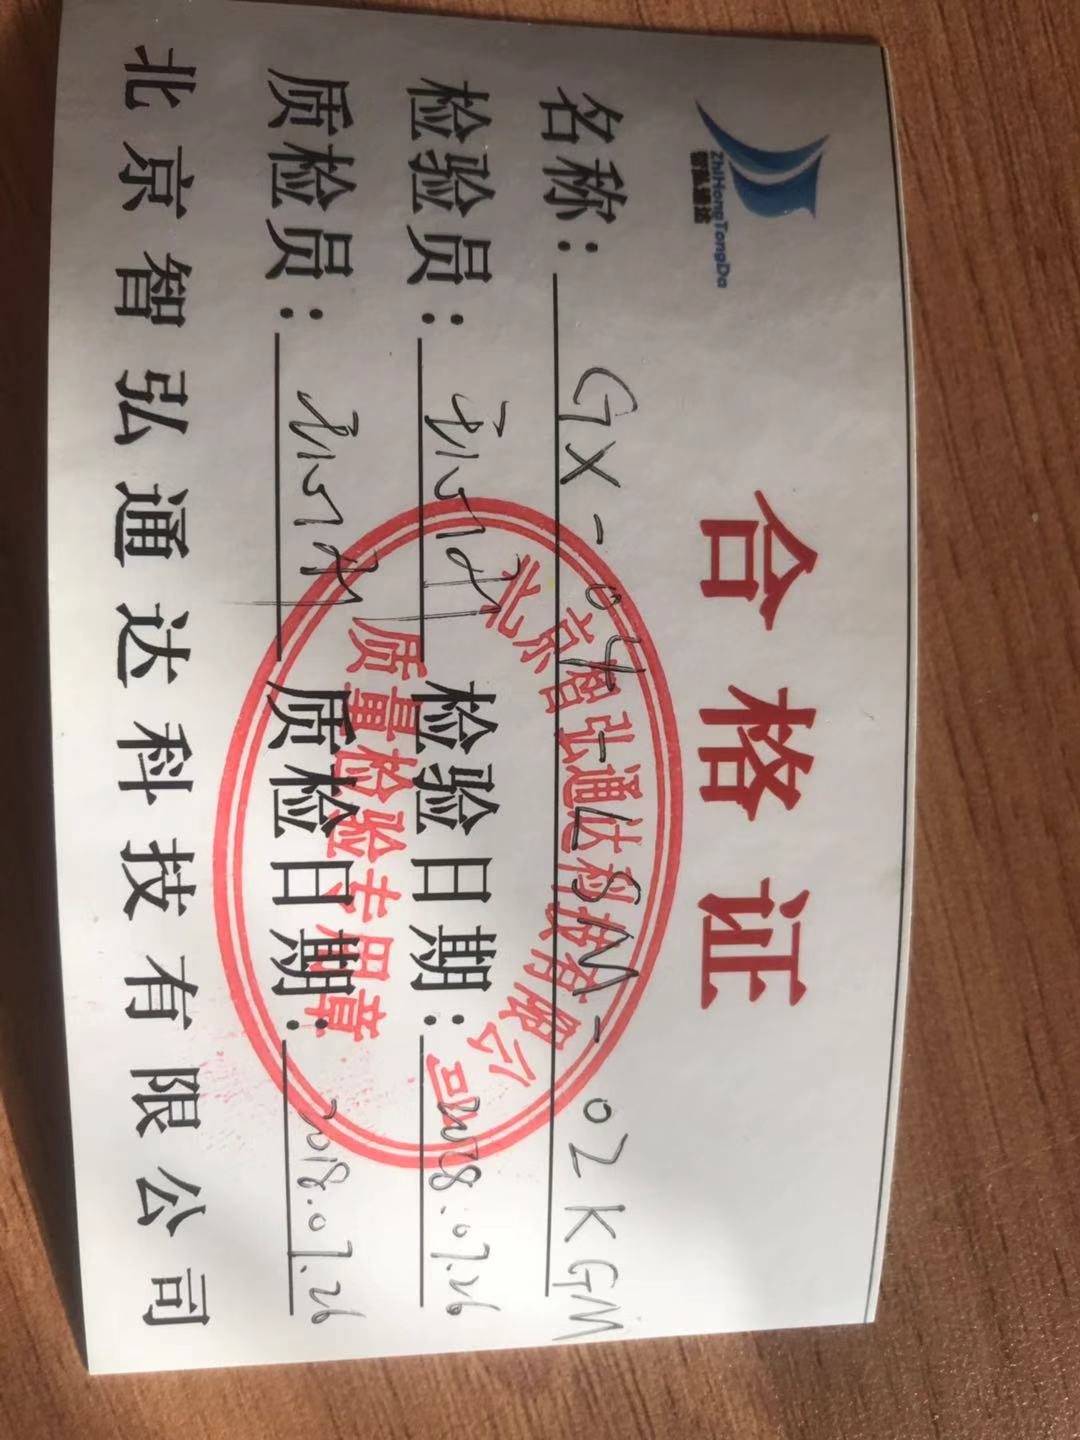 ZhiHongTongDa
智弘通达
合格证
名称：GX-04-LSM-02KGM
检验员： 检验日期：2018.07.26
质检员： 质检日期：2018.07.26
北京智弘通达科技有限公司
北京智弘通达科技有限公司
质量检验专用章